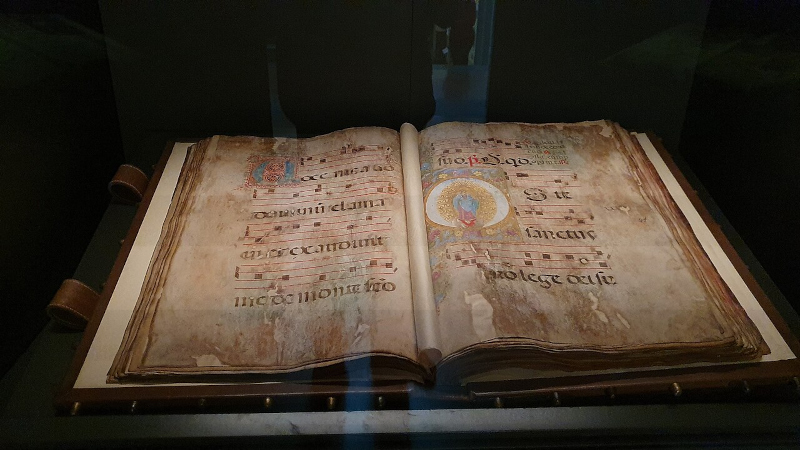 oce mea ad
dominū clama
ui et exaudiuit
me de monte sco
suo.
S te
sanctus
pro lege dei su